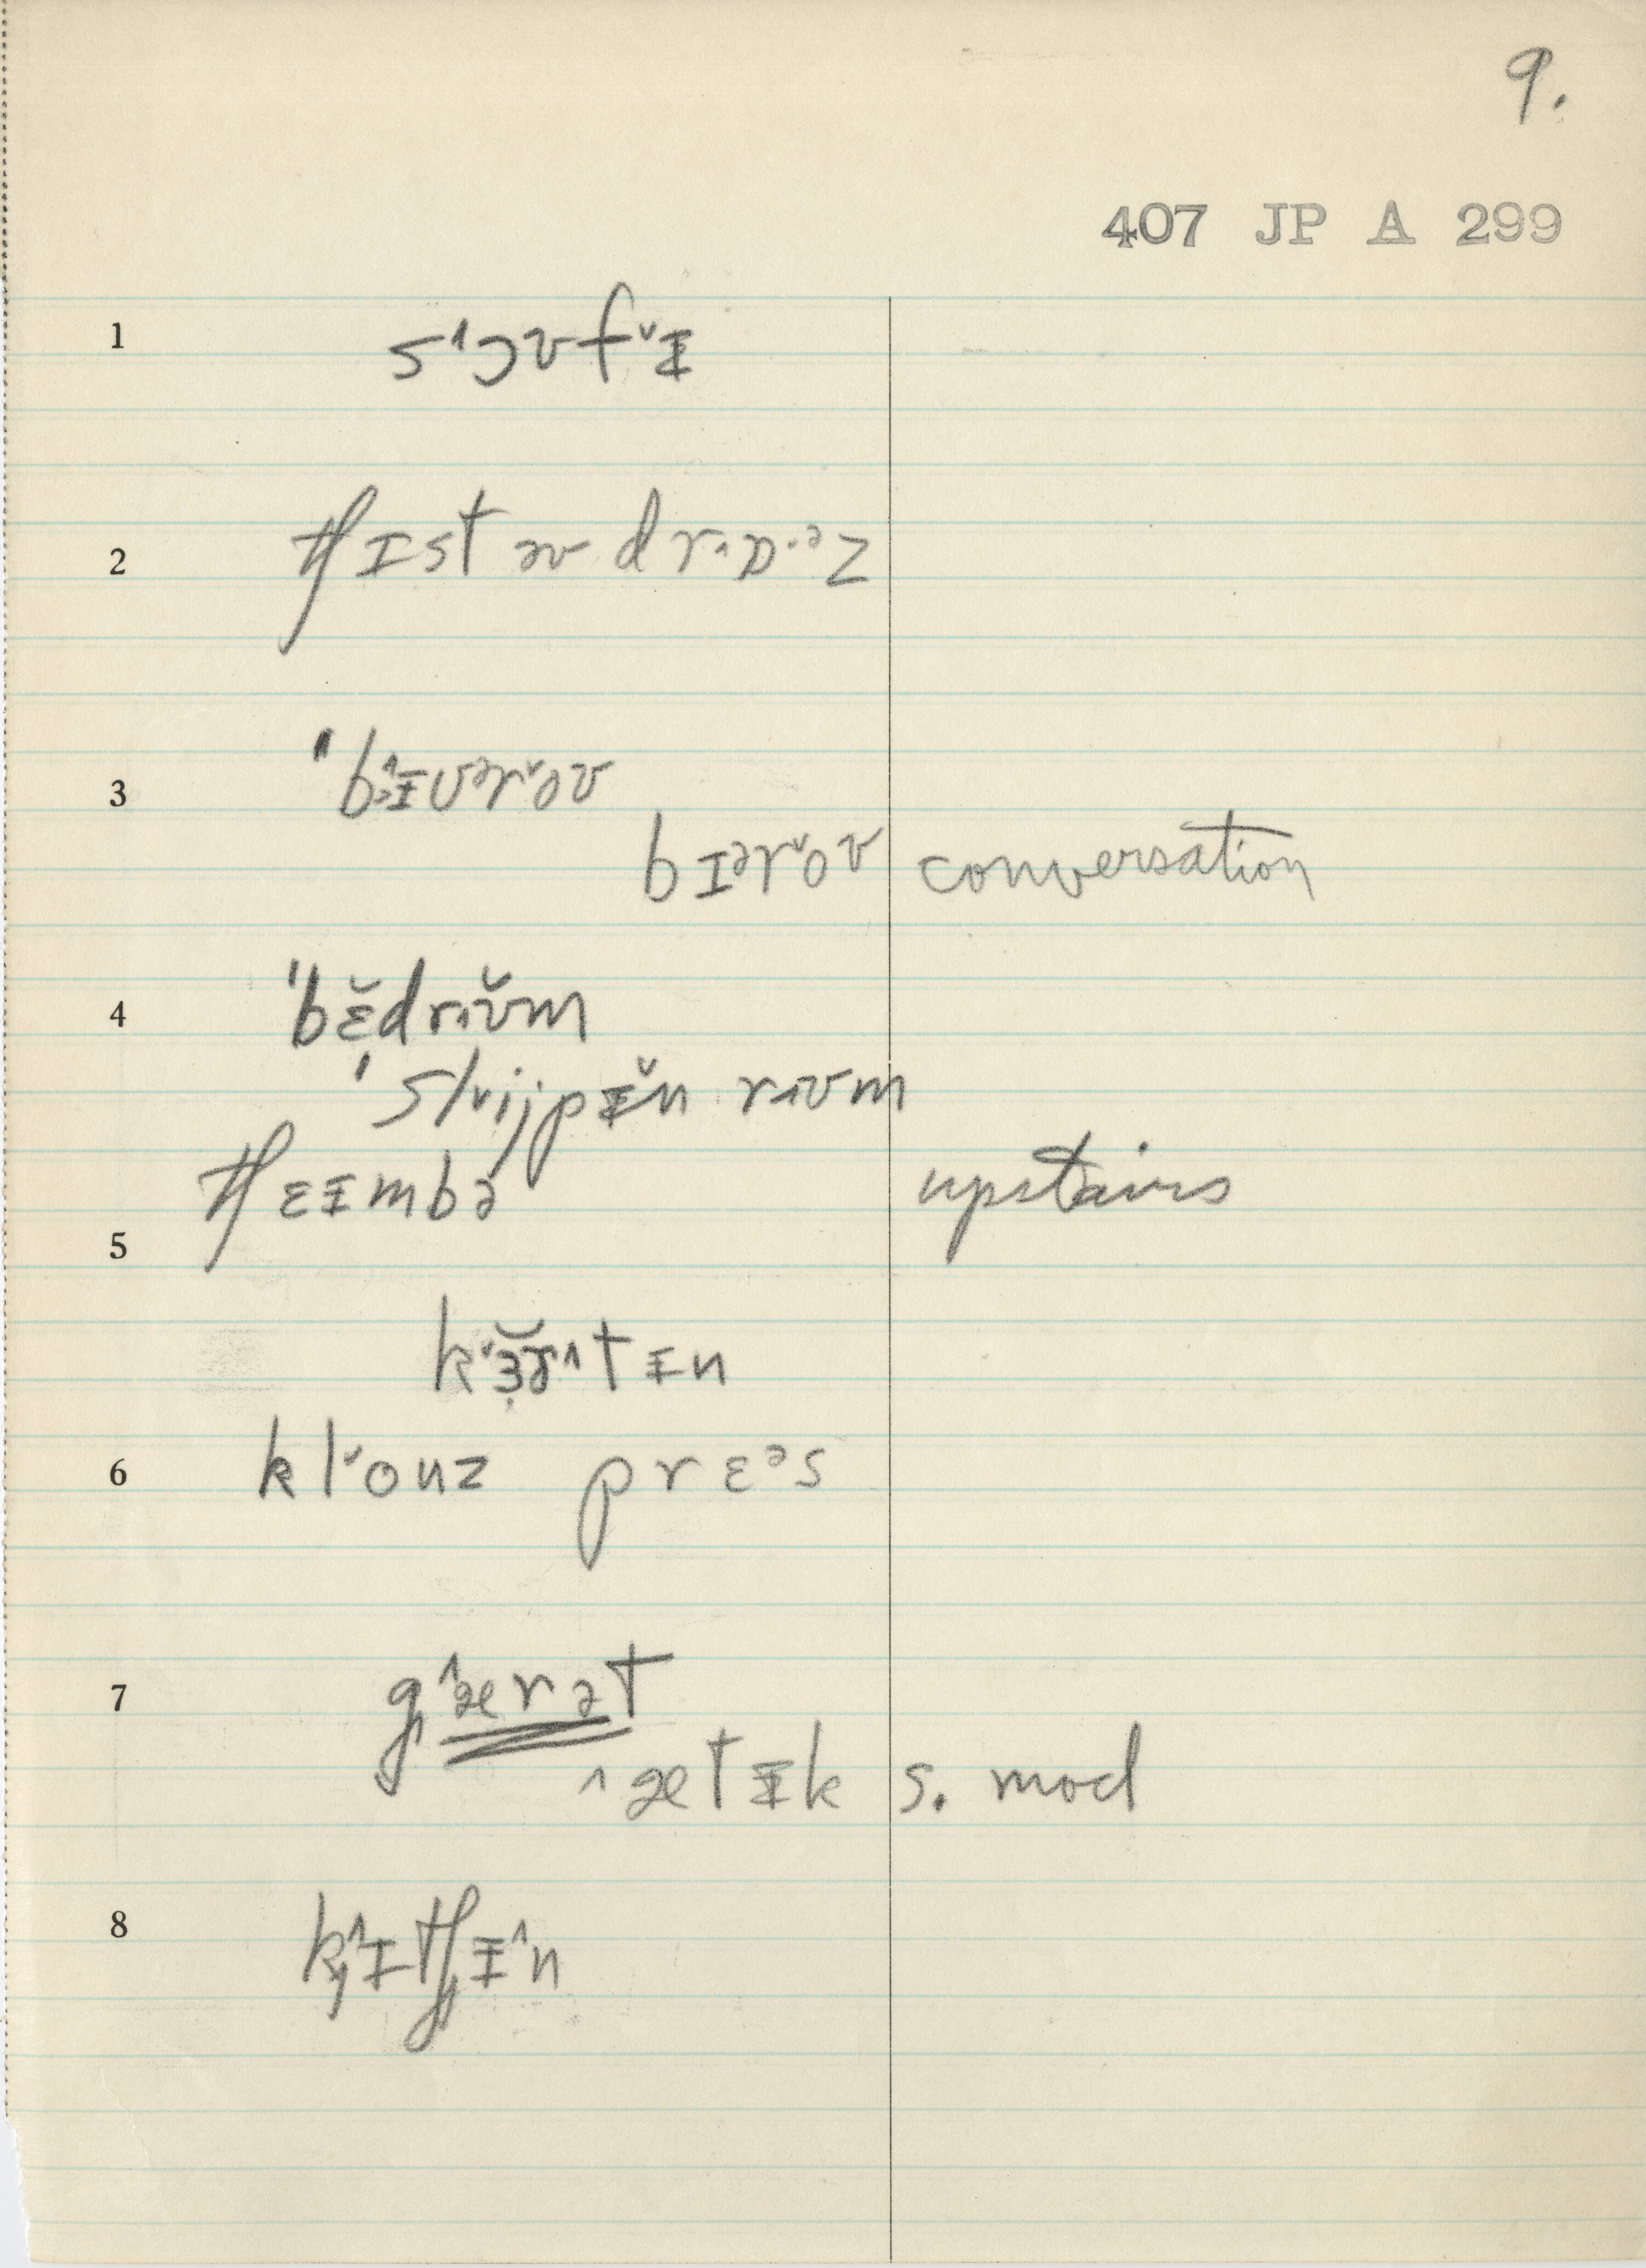 9.
407 JP A 299
1 s˄ɔʊf˅ᵻ
2 tʃɪst əv drɒ·ᵊz
3 ˈb˄ᵻʊᵊr˅oʊ
bɪᵊr˅oʊ conversation
4 ˈbɛ̆drʊ̆m
ˈsl˅ijpᵻ̆n rʊm
tʃɛᵻmbə upstairs
5
k˅ɜ̆tᵻn
6 kl˅ouz prɛᵊs
7 g˄ærət
˄ætᵻk s. mod
8 k˄ɪtʃᵻ˄n